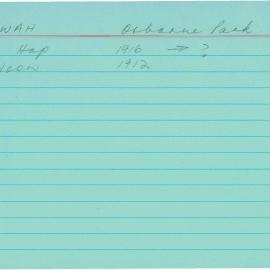 WAH Osborne Park
Hop 1916 → ?
1912